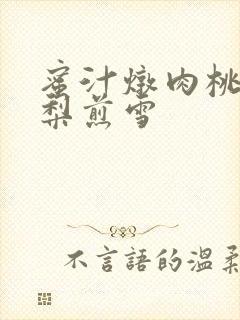 蜜汁燉肉桃
梨煎雪
不言語的溫柔